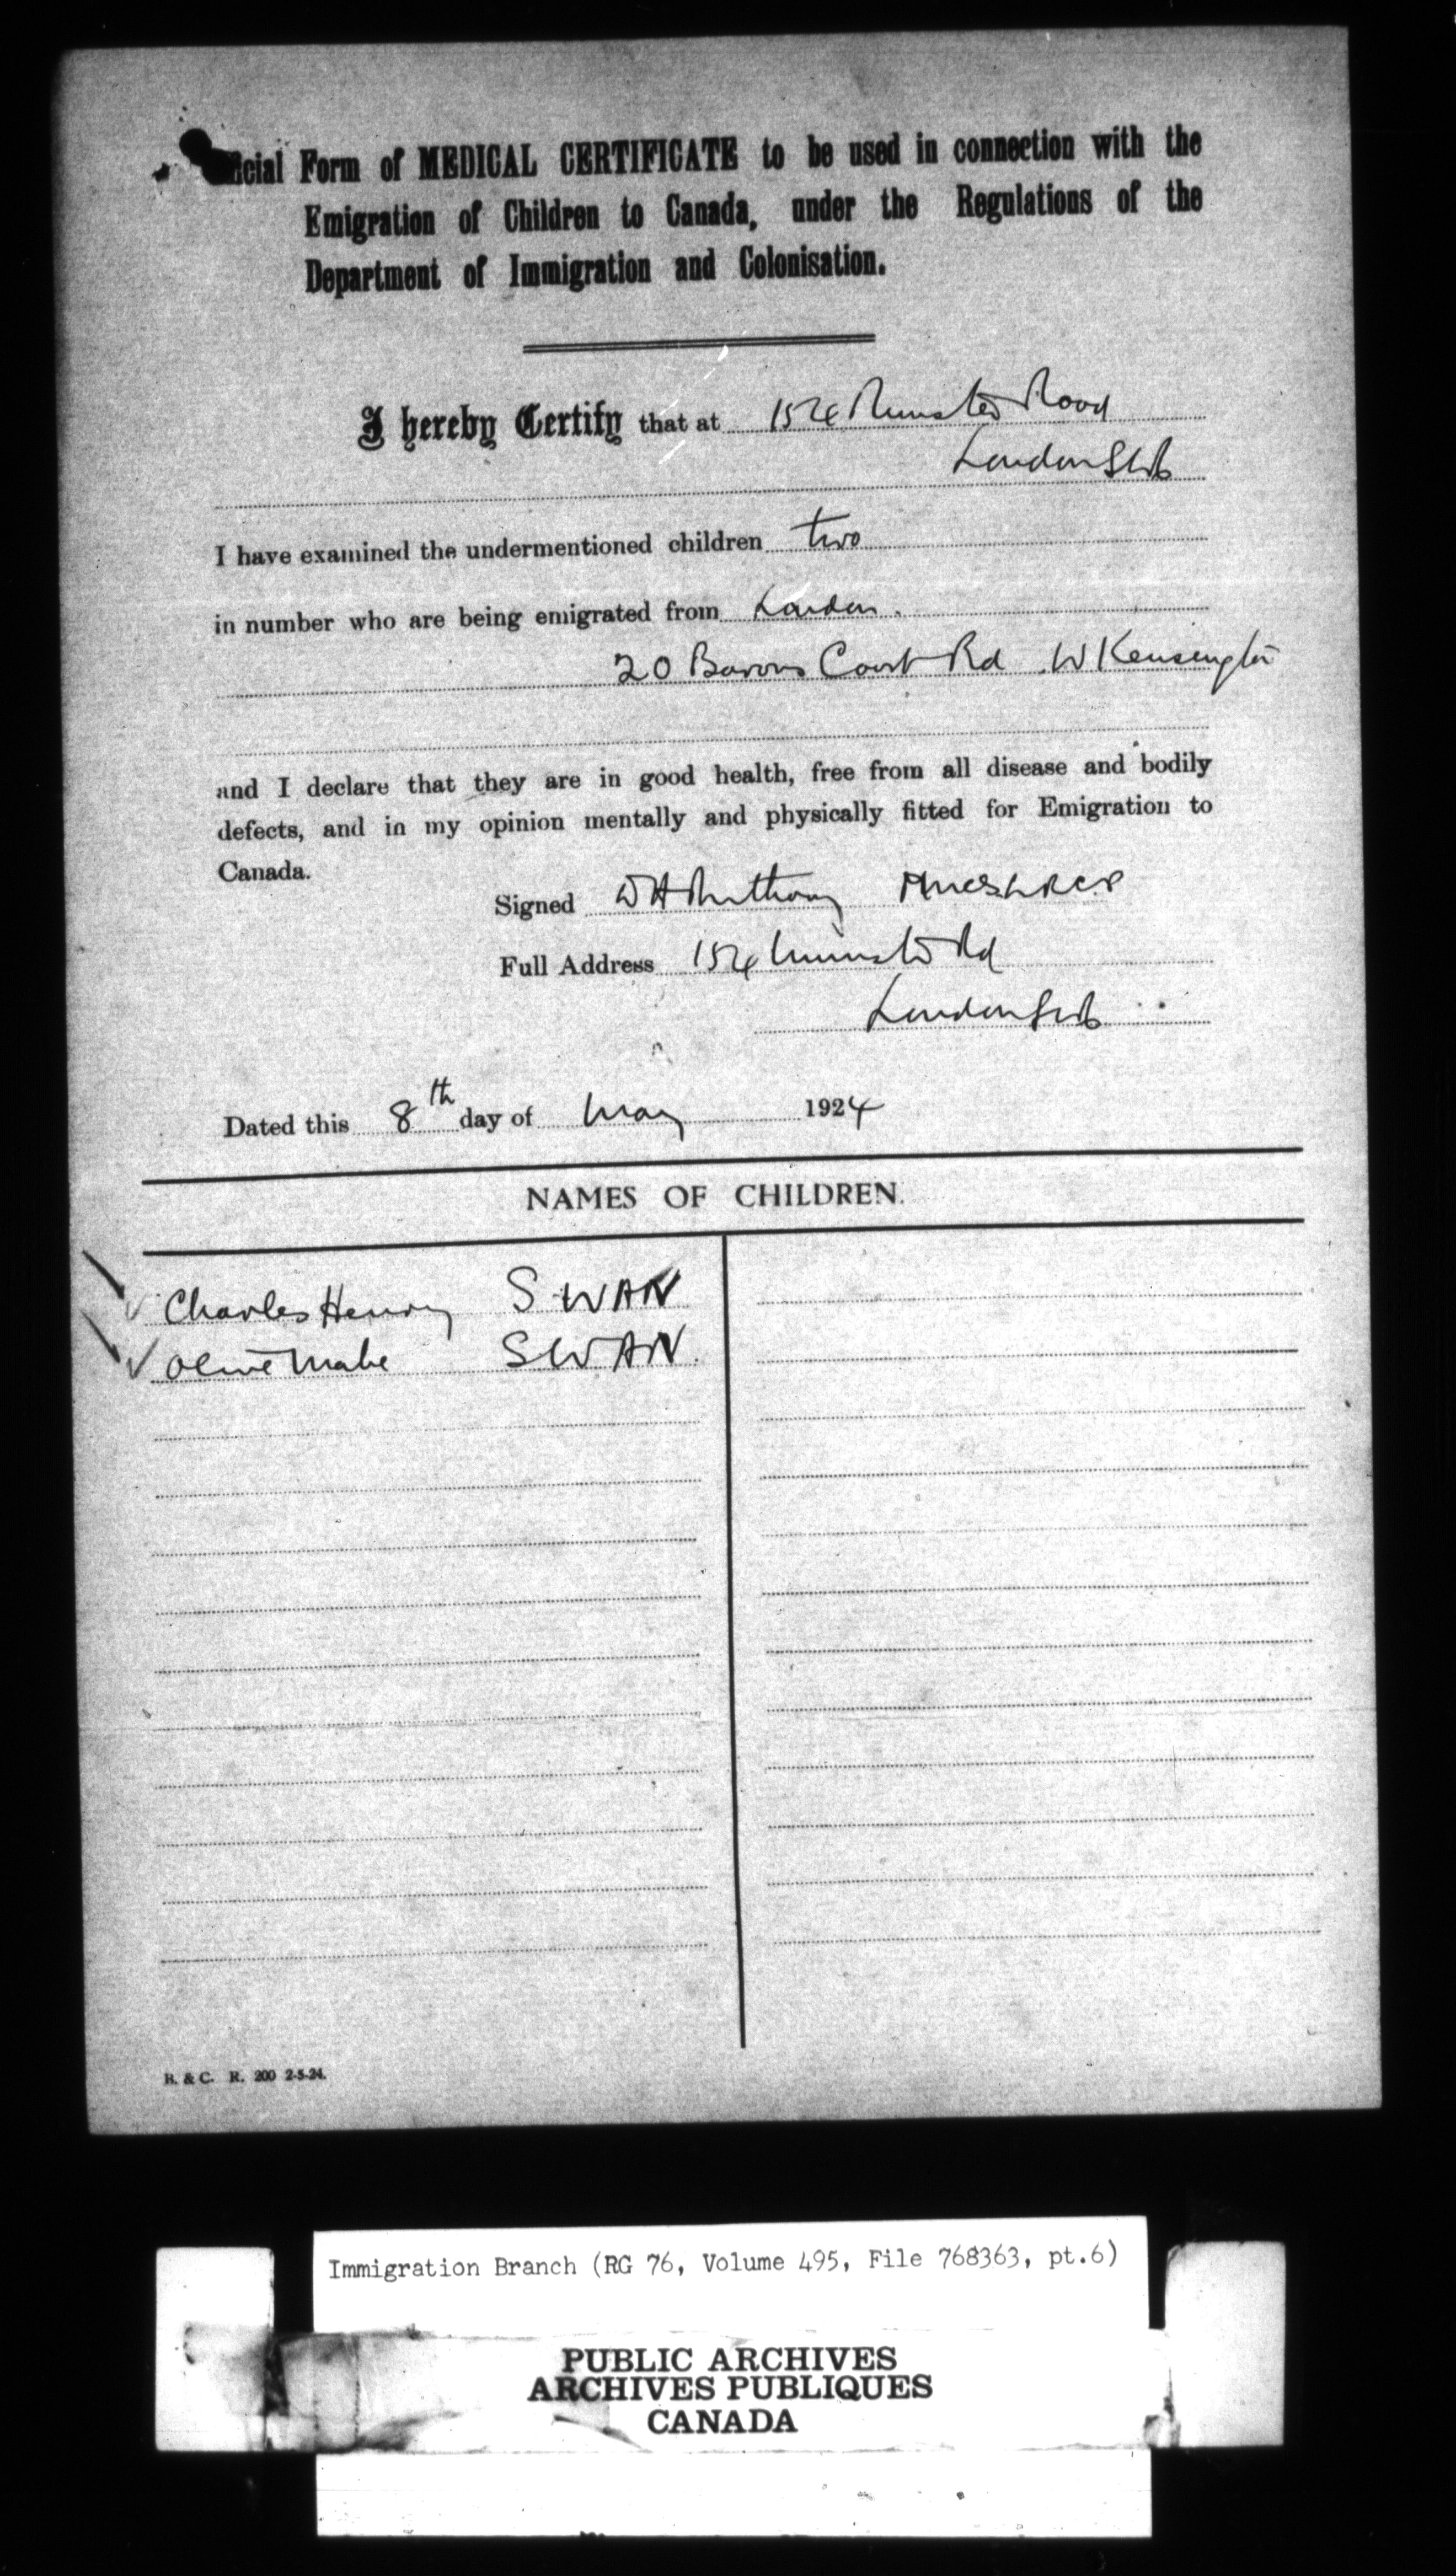 icial Form of MEDICAL CERTIFICATE to be used in connection with the
Emigration of Children to Canada, under the Regulations of the
Department of Immigration and Colonisation.
I hereby Certify that at 154 Munster Road
London SW6
I have examined the undermentioned children two
in number who are being emigrated from London.
20 Barons Court Rd W Kensington
and I declare that they are in good health, free from all disease and bodily
defects, and in my opinion mentally and physically fitted for Emigration to
Canada.
Signed W H Anthony MRCS LRCP
Full Address 154 Munster Rd
London SW6
Dated this 8th day of May 1924
NAMES OF CHILDREN.
Charles Henry SWAN
Olive SWAN.
B. & C. R. 200 2-5-24.
Immigration Branch (RG 76, Volume 495, File 768363, pt.6)
PUBLIC ARCHIVES
ARCHIVES PUBLIQUES
CANADA